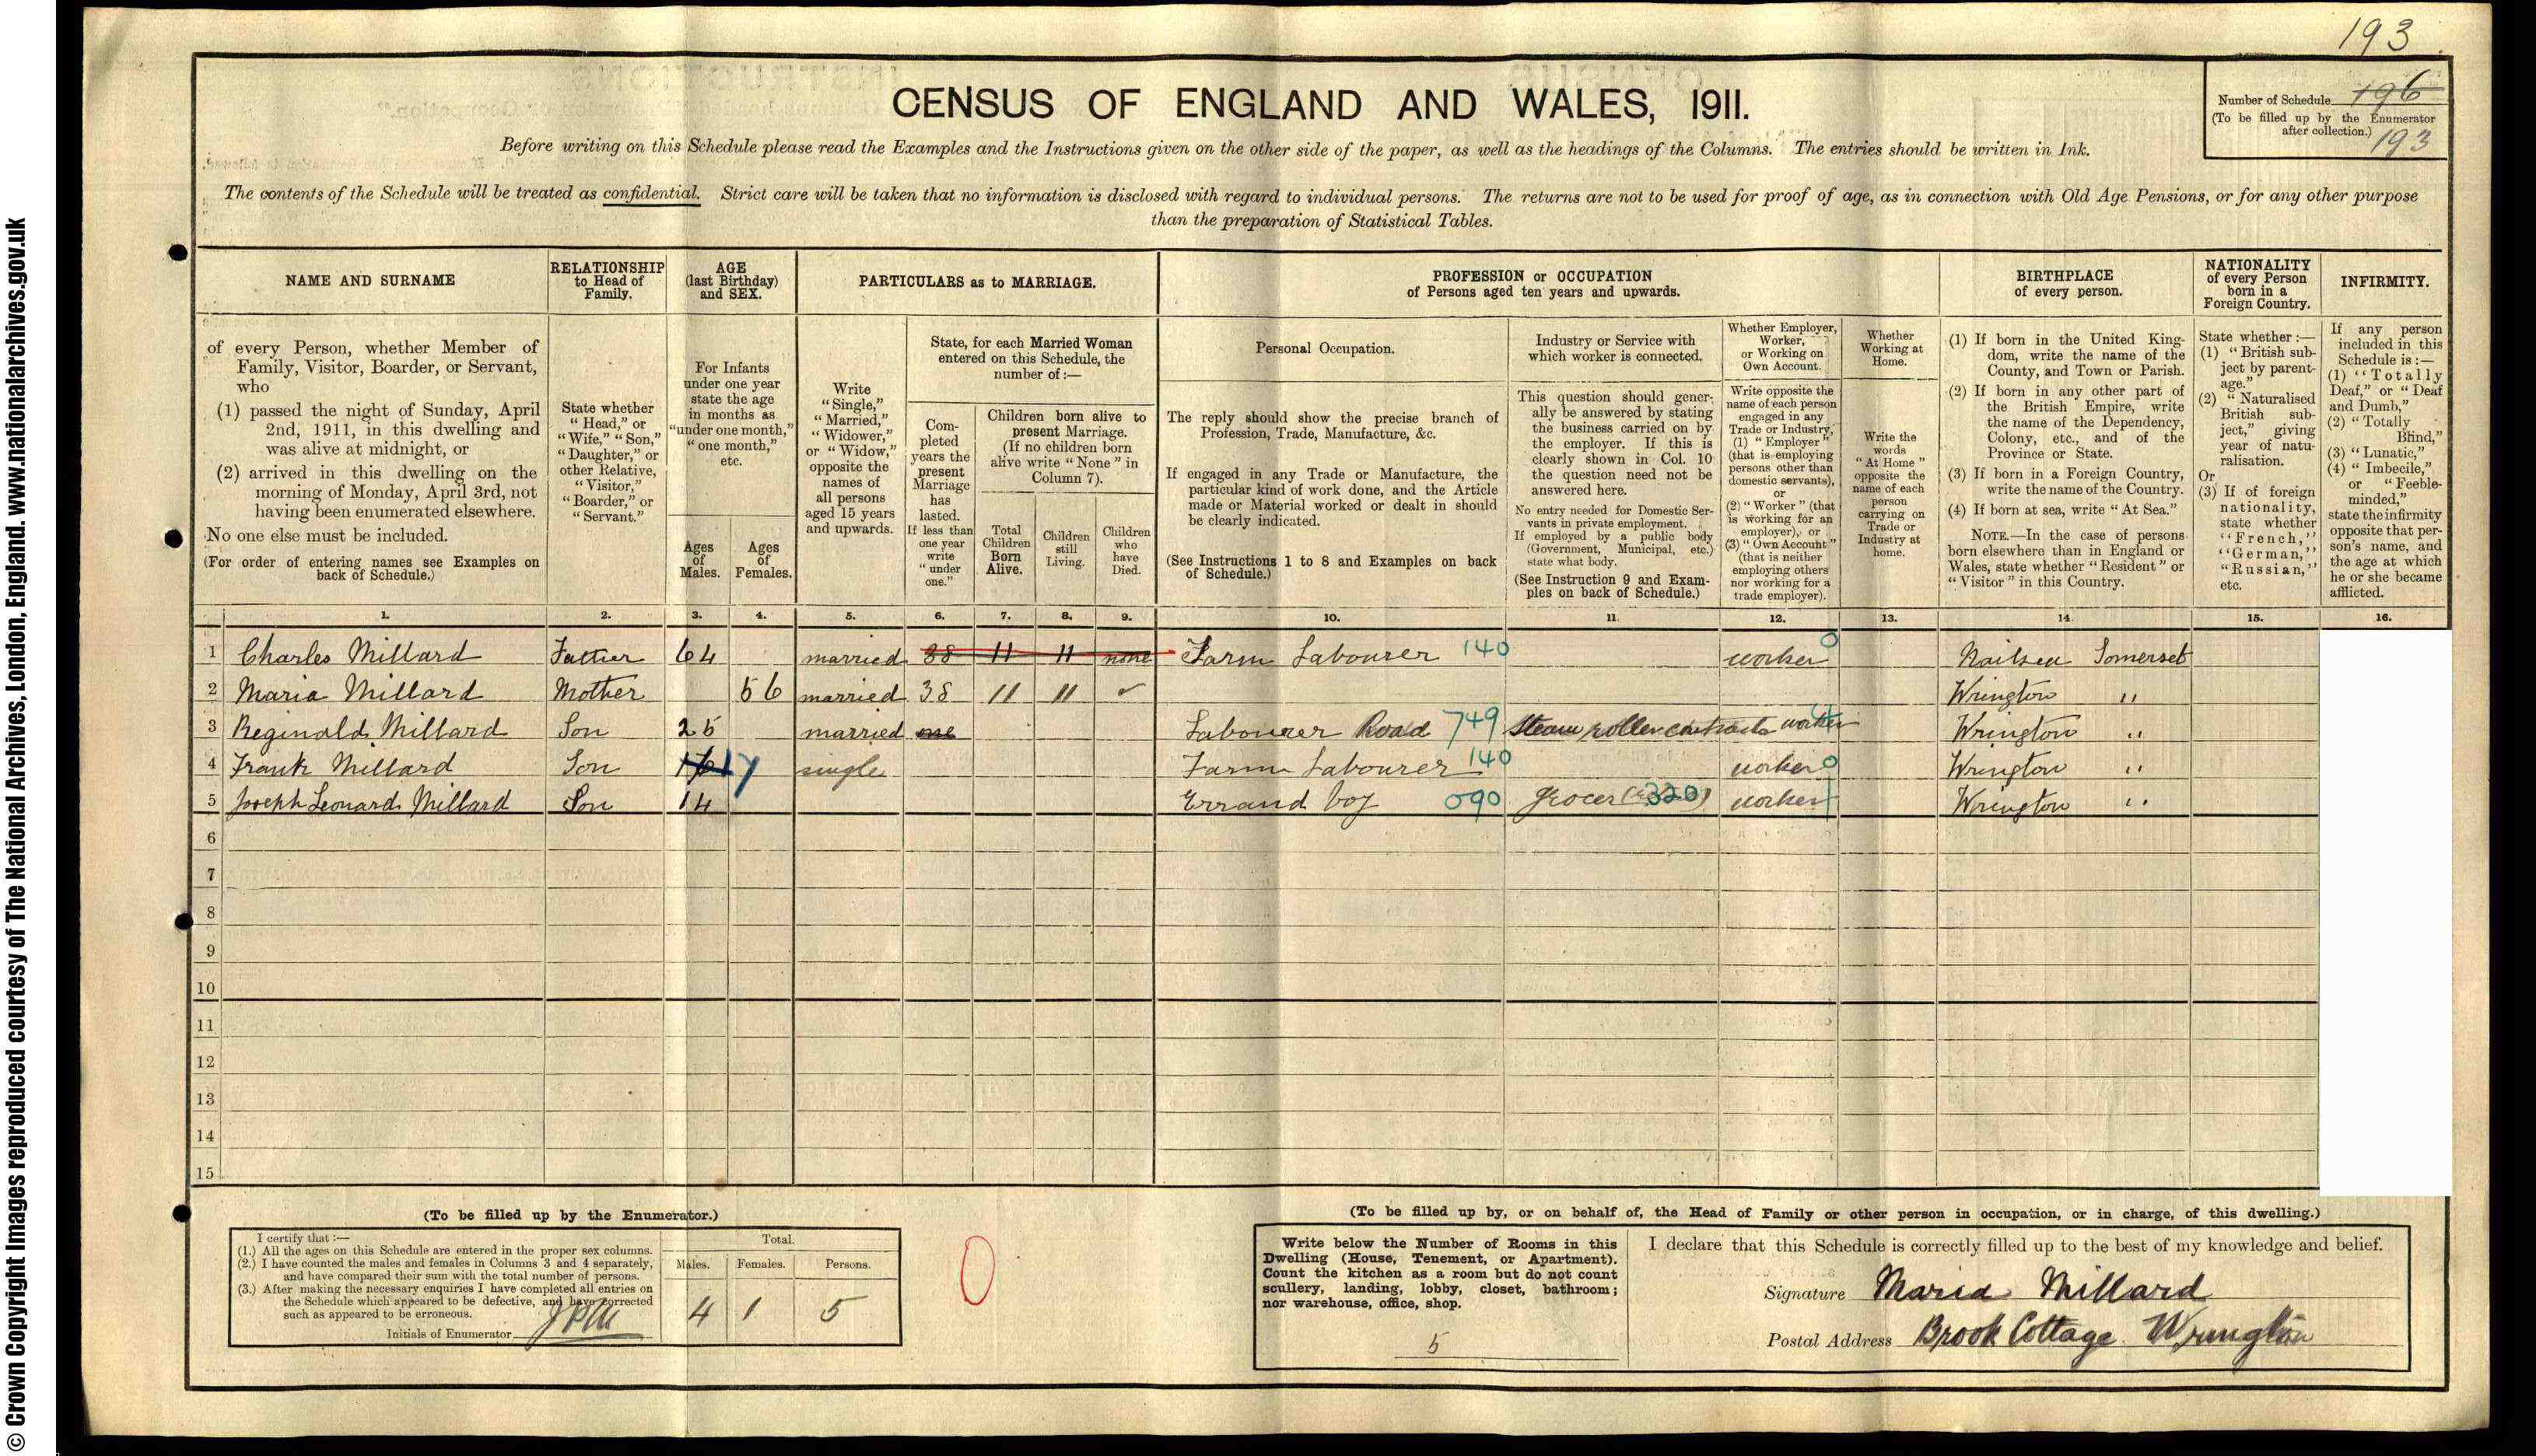 193
CENSUS OF ENGLAND AND WALES, 1911.
Number of Schedule 196
(To be filled up by the Enumerator
after collection.) 193
Before writing on this Schedule please read the Examples and the Instructions given on the other side of the paper, as well as the headings of the Columns. The entries should be written in Ink.
The contents of the Schedule will be treated as confidential. Strict care will be taken that no information is disclosed with regard to individual persons. The returns are not to be used for proof of age, as in connection with Old Age Pensions, or for any other purpose
than the preparation of Statistical Tables.
NAME AND SURNAME
of every Person, whether Member of
Family, Visitor, Boarder, or Servant,
who
(1) passed the night of Sunday, April
2nd, 1911, in this dwelling and
was alive at midnight, or
(2) arrived in this dwelling on the
morning of Monday, April 3rd, not
having been enumerated elsewhere.
No one else must be included.
(For order of entering names see Examples on
back of Schedule.)
RELATIONSHIP
to Head of
Family.
State whether
"Head," or
"Wife," "Son,"
"Daughter," or
other Relative,
"Visitor,"
"Boarder," or
"Servant."
AGE
(last Birthday)
and SEX.
For Infants
under one year
state the age
in months as
"under one month,"
"one month,"
etc.
Ages
of
Males.
Ages
of
Females.
PARTICULARS as to MARRIAGE.
Write
"Single,"
"Married,"
"Widower,"
or "Widow,"
opposite the
names of
all persons
aged 15 years
and upwards.
State, for each Married Woman
entered on this Schedule, the
number of :—
Com-
pleted
years the
present
Marriage
has
lasted.
If less than
one year
write
"under
one."
Children born alive to
present Marriage.
(If no children born
alive write "None" in
Column 7).
Total
Children
Born
Alive.
Children
still
Living.
Children
who
have
Died.
PROFESSION or OCCUPATION
of Persons aged ten years and upwards.
Personal Occupation.
The reply should show the precise branch of
Profession, Trade, Manufacture, &c.
If engaged in any Trade or Manufacture, the
particular kind of work done, and the Article
made or Material worked or dealt in should
be clearly indicated.
(See Instructions 1 to 8 and Examples on back
of Schedule.)
Industry or Service with
which worker is connected.
This question should gener-
ally be answered by stating
the business carried on by
the employer. If this is
clearly shown in Col. 10
the question need not be
answered here.
No entry needed for Domestic Ser-
vants in private employment.
If employed by a public body
(Government, Municipal, etc.)
state what body.
(See Instruction 9 and Exam-
ples on back of Schedule.)
Whether Employer,
Worker,
or Working on
Own Account.
Write opposite the
name of each person
engaged in any
Trade or Industry,
(1) "Employer"
(that is employing
persons other than
domestic servants),
or
(2) "Worker" (that
is working for an
employer), or
(3) "Own Account"
(that is neither
employing others
nor working for a
trade employer).
Whether
Working at
Home.
Write the
words
"At Home"
opposite the
name of each
person
carrying on
Trade or
Industry at
home.
BIRTHPLACE
of every person.
(1) If born in the United King-
dom, write the name of the
County, and Town or Parish.
(2) If born in any other part of
the British Empire, write
the name of the Dependency,
Colony, etc., and of the
Province or State.
(3) If born in a Foreign Country,
write the name of the Country.
(4) If born at sea, write "At Sea."
NOTE.—In the case of persons
born elsewhere than in England or
Wales, state whether "Resident" or
"Visitor" in this Country.
NATIONALITY
of every Person
born in a
Foreign Country.
State whether :—
(1) "British sub-
ject by parent-
age."
(2) "Naturalised
British sub-
ject," giving
year of natu-
ralisation.
Or
(3) If of foreign
nationality,
state whether
"French,"
"German,"
"Russian,"
etc.
INFIRMITY.
If any person
included in this
Schedule is :—
(1) "Totally
Deaf," or "Deaf
and Dumb,"
(2) "Totally
Blind,"
(3) "Lunatic,"
(4) "Imbecile,"
or "Feeble-
minded,"
state the infirmity
opposite that per-
son's name, and
the age at which
he or she became
afflicted.
1. 2. 3. 4. 5. 6. 7. 8. 9. 10. 11. 12. 13. 14. 15. 16.
1 Charles Millard Father 64 married 38 11 11 none Farm Labourer 140 worker 0 Nailsea Somerset
2 Maria Millard Mother 56 married 38 11 11 Wrington "
3 Reginald Millard Son 25 married one Labourer Road 749 Steam roller contractor worker Wrington "
4 Frank Millard Son 16 17 single Farm Labourer 140 worker 0 Wrington "
5 Joseph Leonard Millard Son 14 Errand boy 090 Grocer 320 worker Wrington "
6
7
8
9
10
11
12
13
14
15
(To be filled up by the Enumerator.)
I certify that :—
(1.) All the ages on this Schedule are entered in the proper sex columns.
(2.) I have counted the males and females in Columns 3 and 4 separately,
and have compared their sum with the total number of persons.
(3.) After making the necessary enquiries I have completed all entries on
the Schedule which appeared to be defective, and have corrected
such as appeared to be erroneous.
Initials of Enumerator
Total.
Males. Females. Persons.
4 1 5
0
(To be filled up by, or on behalf of, the Head of Family or other person in occupation, or in charge, of this dwelling.)
Write below the Number of Rooms in this
Dwelling (House, Tenement, or Apartment).
Count the kitchen as a room but do not count
scullery, landing, lobby, closet, bathroom;
nor warehouse, office, shop.
5
I declare that this Schedule is correctly filled up to the best of my knowledge and belief.
Signature Maria Millard
Postal Address Brook Cottage Wrington
© Crown Copyright Images reproduced courtesy of The National Archives, London, England. www.nationalarchives.gov.uk